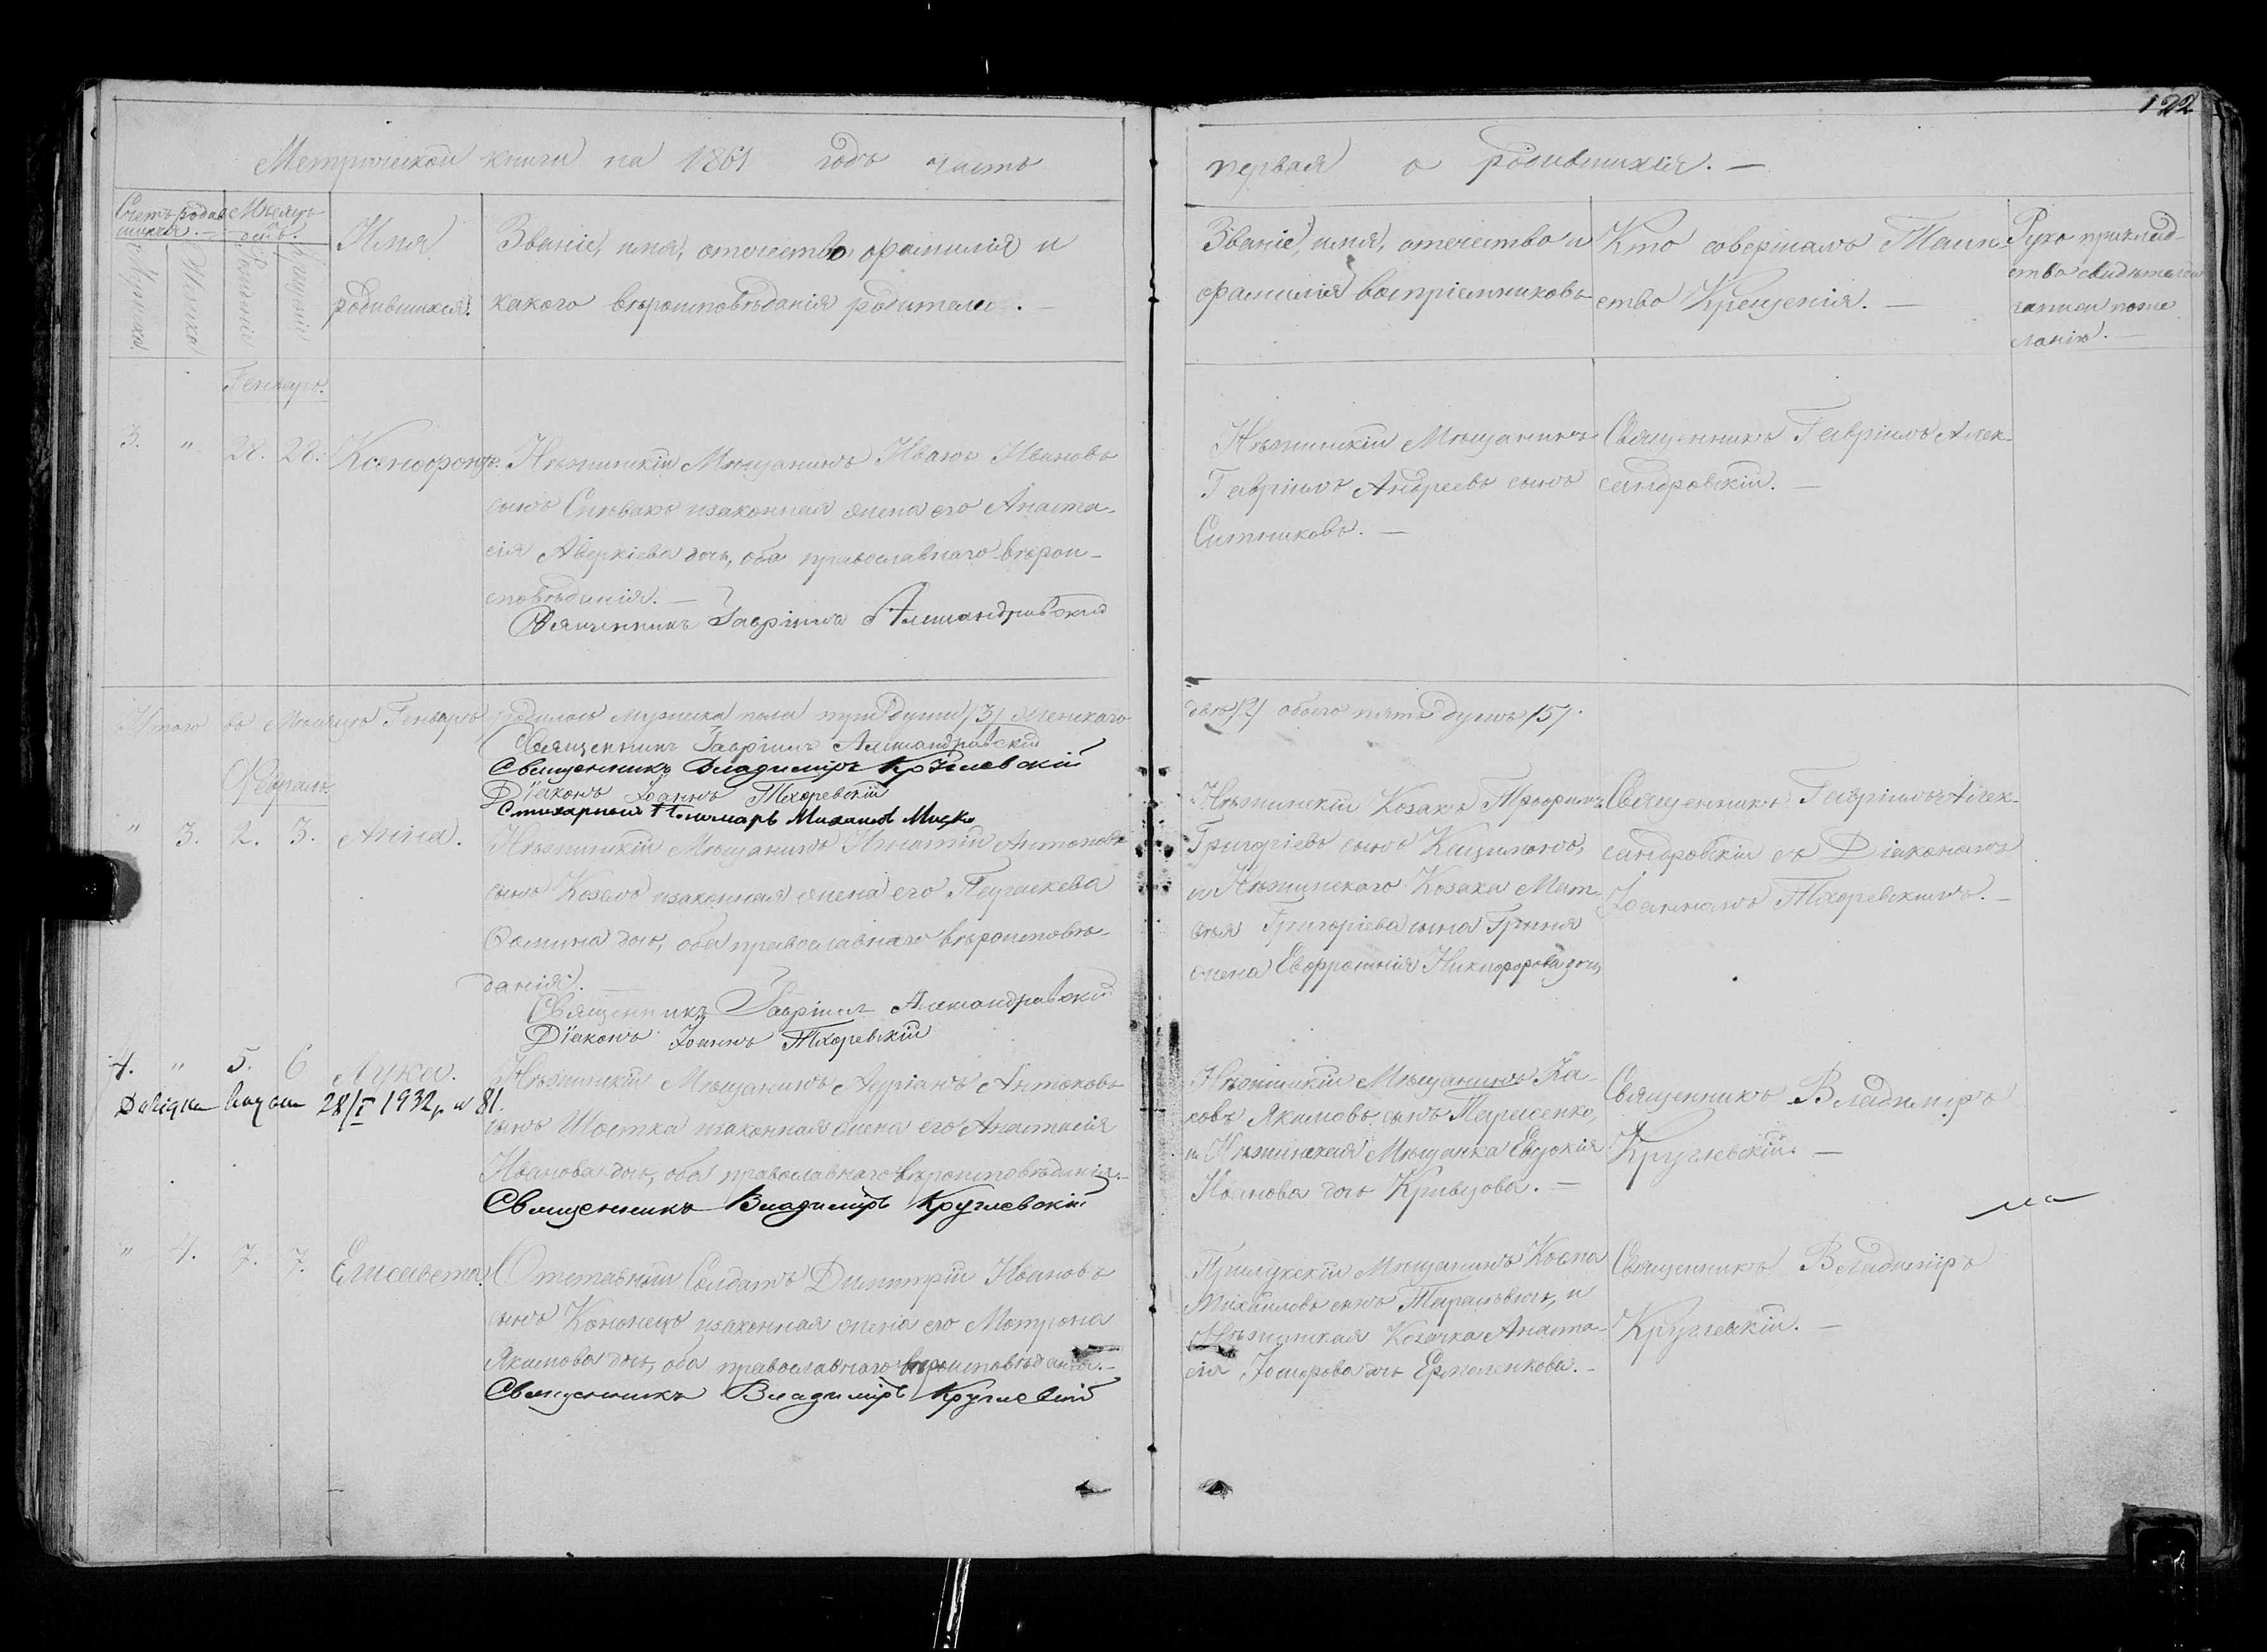 122
Метрической книги на 1861 годъ часть
первая о родившихся. —
Счетъ родив
шихся.
Мѣсяцъ
день.
Мужеска.
Женска.
Рожденія
Крещенія
Имя
родившихся.
Званіе, имя, отчество, фамилія и
какого вѣроисповѣданія родители. —
Званіе, имя, отчество и
фамилія воспріемниковъ
Кто совершалъ Таин
ство Крещенія. —
Руко приклад
ство свидѣтелей
записи по же
ланію. —
Генварь.
3. " 28. 28. Ксенофонтъ.
Нѣжинскій Мѣщанинъ Иванъ Ивановъ
сынъ Спивакъ изаконная жена его Анаста-
сія Аверкіева дочь, оба православнаго вѣрои-
сповѣданія. —
Священникъ Гавріилъ Александровскій
Нѣжинскій Мѣщанинъ
Гавріилъ Андреевъ сынъ
Ситниковъ. —
Священникъ Гавріилъ Алек-
сандровскій. —
Итого въ Мѣсяцѣ Генварѣ родилось мужеска пола три души /3/ женскаго
двѣ /2/ обоего пять душъ /5/.
Священникъ Гавріилъ Александровскій
Священникъ Владиміръ Круглевскій
Діаконъ Іоаннъ Тхоревскій
Стихарный Пономарь
Февраль.
" 3. 2. 3. Анна.
Нѣжинскій Мѣщанинъ Игнатій Антоновъ
сынъ Козелъ изаконная жена его Параскева
Ѳомина дочь, оба православнаго вѣроисповѣ-
данія. —
Священникъ Гавріилъ Александровскій
Діаконъ Іоаннъ Тхоревскій
Нѣжинскій Козакъ Трофимъ
Григоріевъ сынъ
и Нѣжинскаго Козака Мат-
вѣя Григоріева сына
жена Евфросинія Никифорова дочь
Священникъ Гавріилъ Алек-
сандровскій съ Діакономъ
Іоанномъ Тхоревскимъ. —
4. " 5. 6 Лука.
28/I 1932 р. № 81.
Нѣжинскій Мѣщанинъ Адріанъ Антоновъ
сынъ Шостка изаконная жена его Анастасія
Иванова дочь, оба православнаго вѣроисповѣданія. —
Священникъ Владиміръ Круглевскій
Нѣжинскій Мѣщанинъ Іа-
ковъ Якимовъ сынъ Тарасенко,
и Нѣжинская Мѣщанка Евдокія
Иванова дочь Кривцова. —
Священникъ Владиміръ
Круглевскій. —
" 4. 7. 7. Елисавета.
Отставный Солдатъ Димитрій Ивановъ
сынъ Кононецъ изаконная жена его Матрона
Якимова дочь, оба православнаго вѣроисповѣданія. —
Священникъ Владиміръ Круглевскій
Прилукскій Мѣщанинъ Косма
Михайловъ сынъ и
Нѣжинская Козачка Анаста-
сія дочь Ермоленкова. —
Священникъ Владиміръ
Круглевскій. —